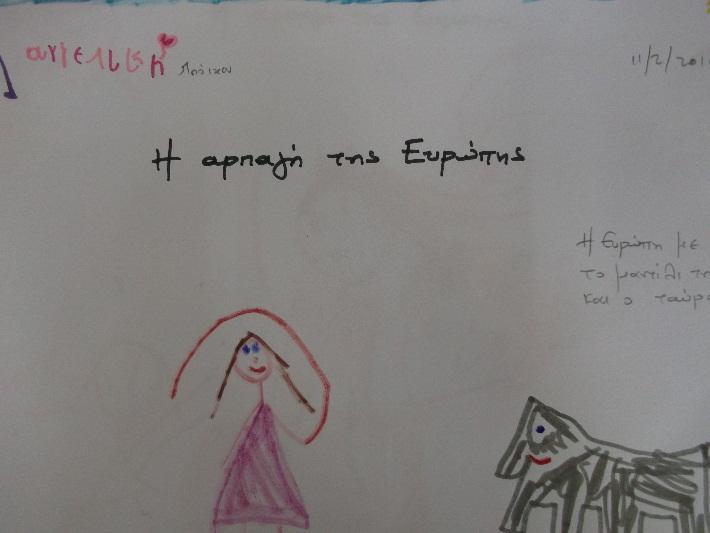 αγγελική
11/2/201
Η αρπαγή της Ευρώπης
Η Ευρώπη με
το μαντίλι τη
και ο ταύρο